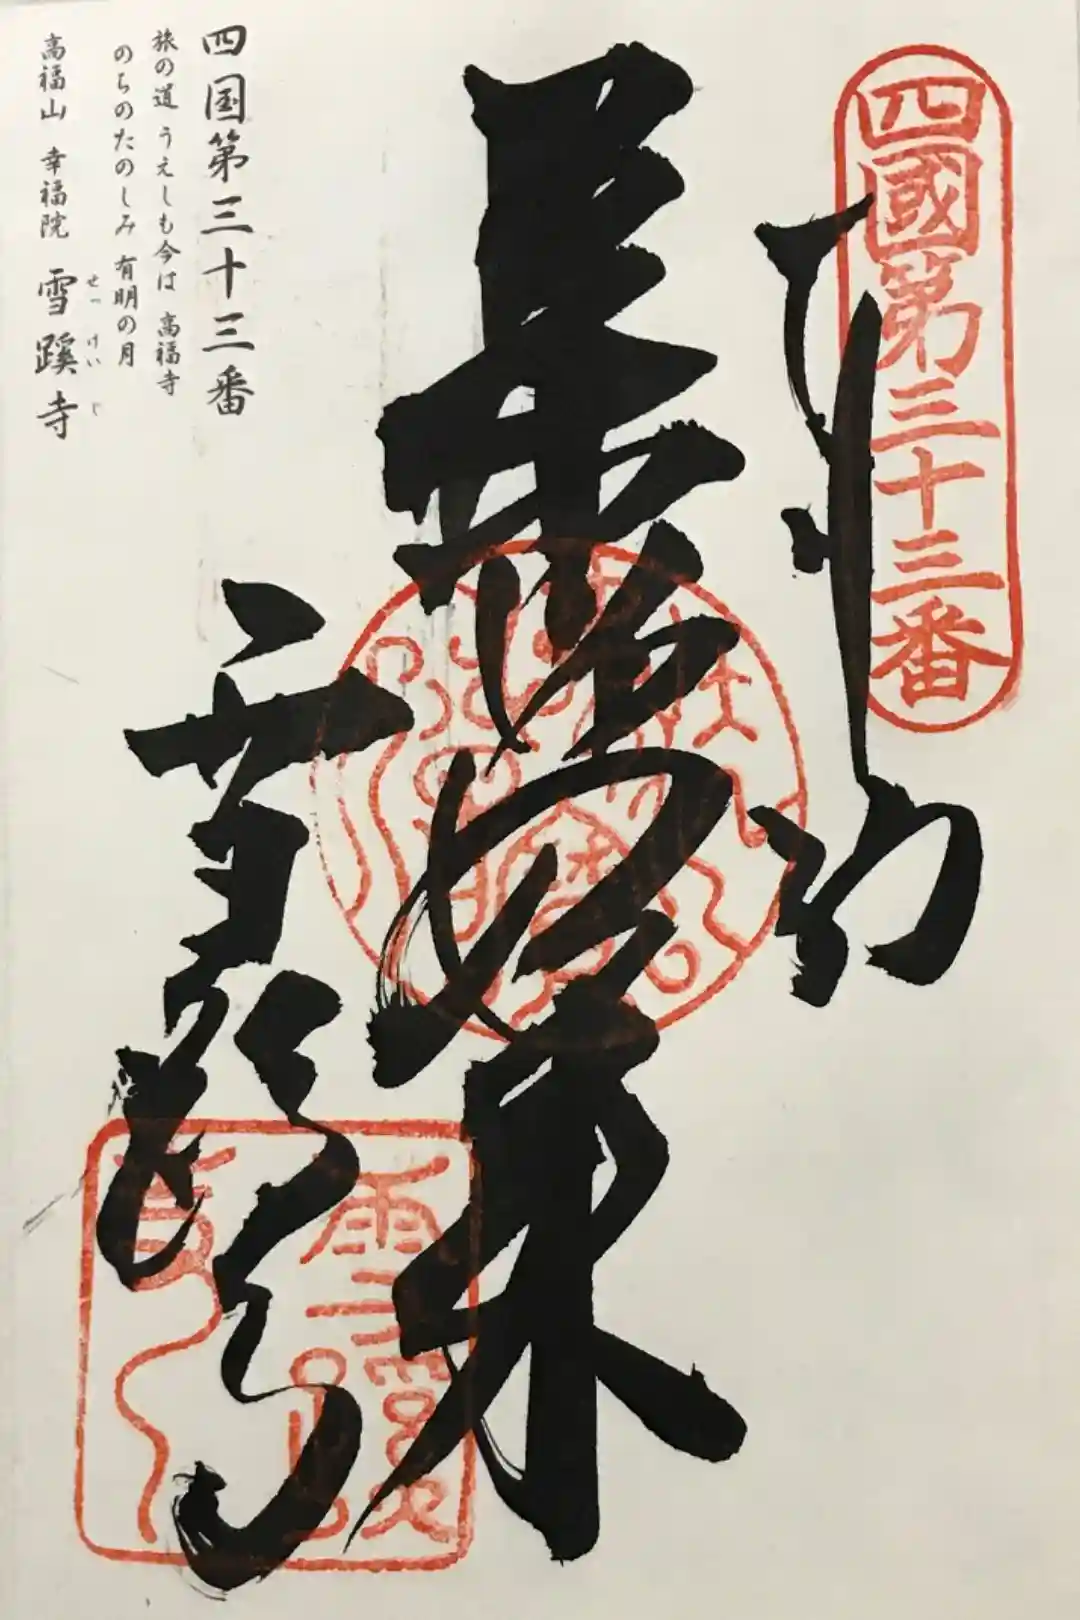 四國第三十三番
奉納
薬師如来
雪蹊寺
四国第三十三番
旅の道 うえしも今は 高福寺
のちのたのしみ 有明の月
高福山 幸福院 雪蹊寺
せっ けい じ